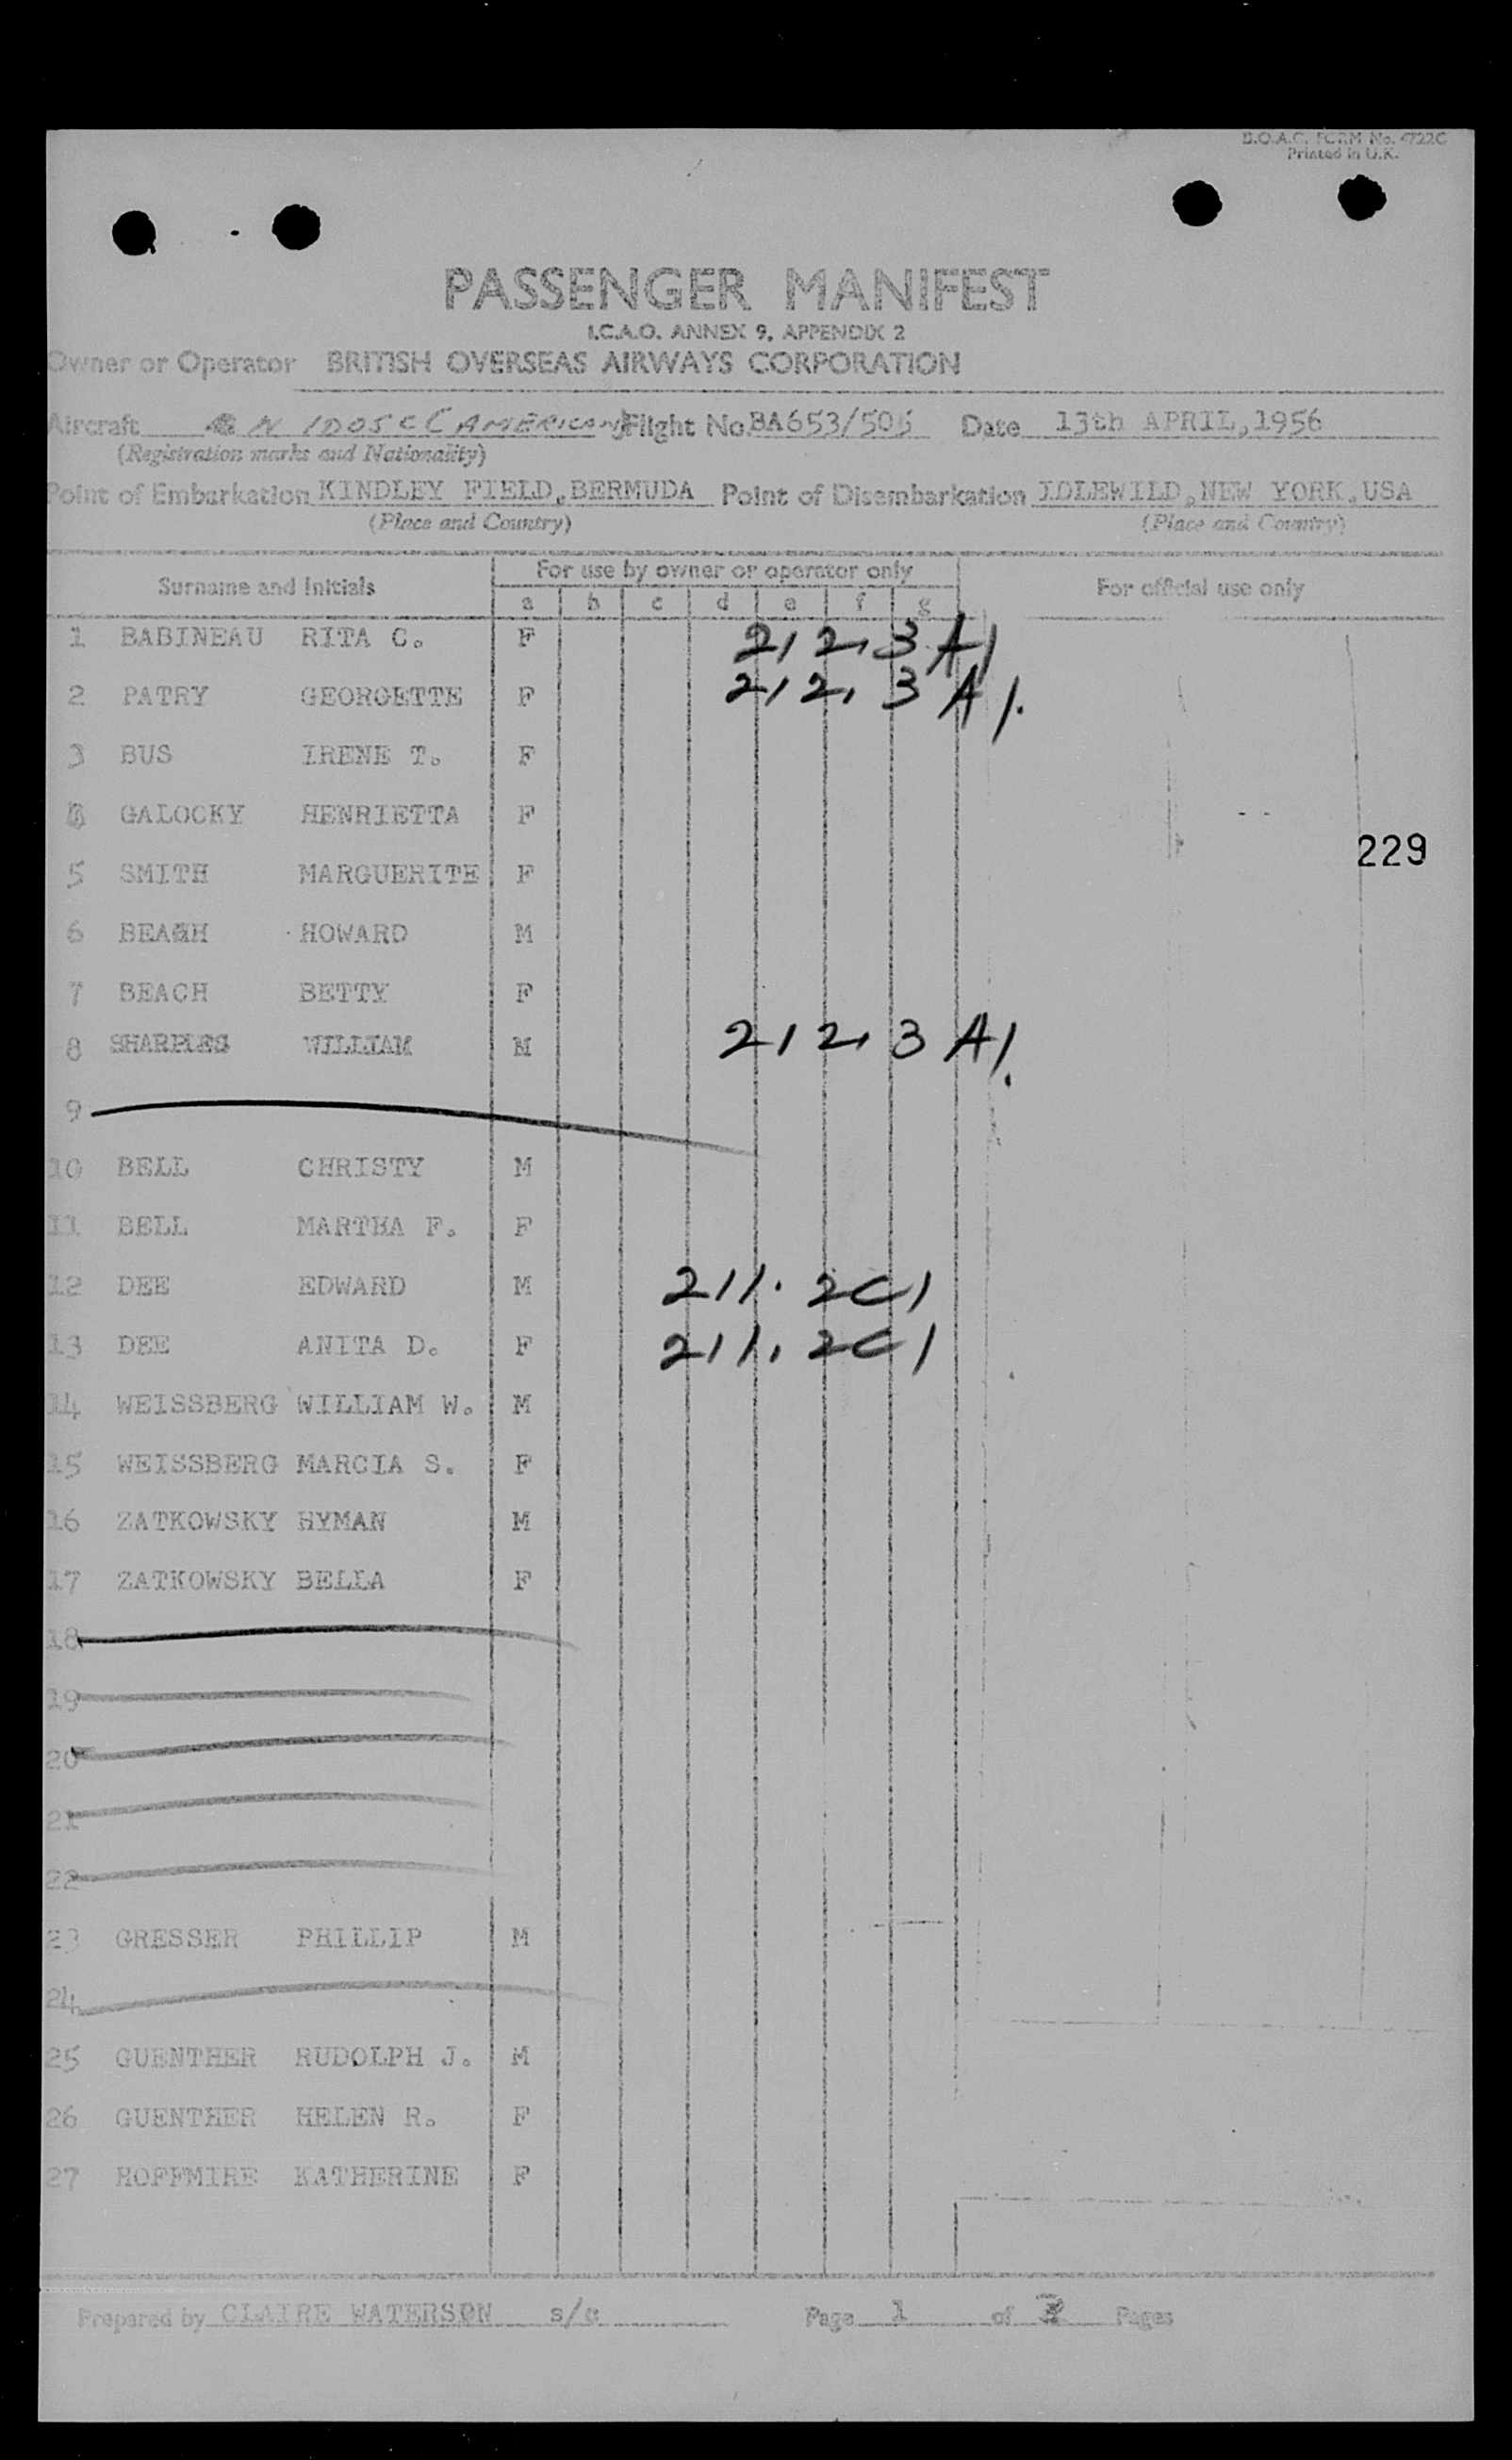 B.O.A.C. FORM No. 4722C
Printed in U.K.
PASSENGER MANIFEST
I.C.A.O. ANNEX 9, APPENDIX 2
Owner or Operator BRITISH OVERSEAS AIRWAYS CORPORATION
Aircraft N 1005 C (AMERICAN) Flight No. BA653/505 Date 13th APRIL, 1956
(Registration marks and Nationality)
Point of Embarkation KINDLEY FIELD, BERMUDA Point of Disembarkation IDLEWILD, NEW YORK, USA
(Place and Country) (Place and Country)
Surname and Initials For use by owner or operator only For official use only
a b c d e f g
1 BABINEAU RITA C. F 2, 2, 3 A1
2 PATRY GEORGETTE F 2, 2, 3 A1.
3 BUS IRENE T. F
4 GALOCKY HENRIETTA F
229
5 SMITH MARGUERITE F
6 BEACH HOWARD M
7 BEACH BETTY F
8 SHARPLES WILLIAM M 2, 2, 3 A1.
9
10 BELL CHRISTY M
11 BELL MARTHA F. F
12 DEE EDWARD M 211. 2C1
13 DEE ANITA D. F 211. 2C1
14 WEISSBERG WILLIAM W. M
15 WEISSBERG MARCIA S. F
16 ZATKOWSKY HYMAN M
17 ZATKOWSKY BELLA F
18
19
20
21
22
23 GRESSER PHILLIP M
24
25 GUENTHER RUDOLPH J. M
26 GUENTHER HELEN R. F
27 HOFFMIRE KATHERINE F
Prepared by CLAIRE WATERSON s/c Page 1 of Pages